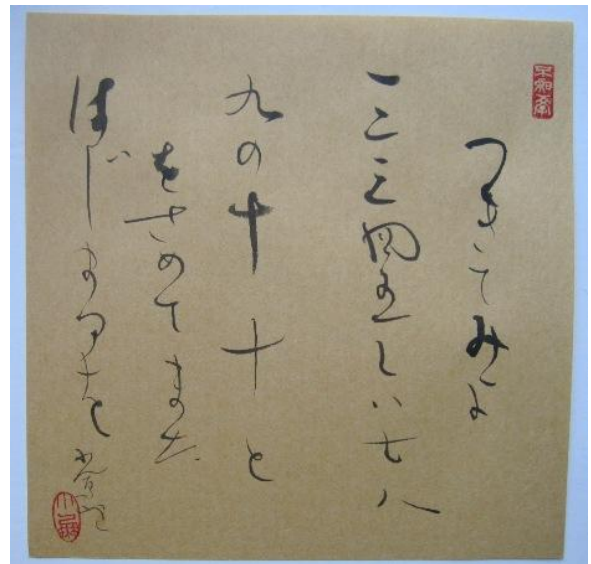 つきてみよ
一二三四五六七八
九の十十と
をさめてまた
はじまるを